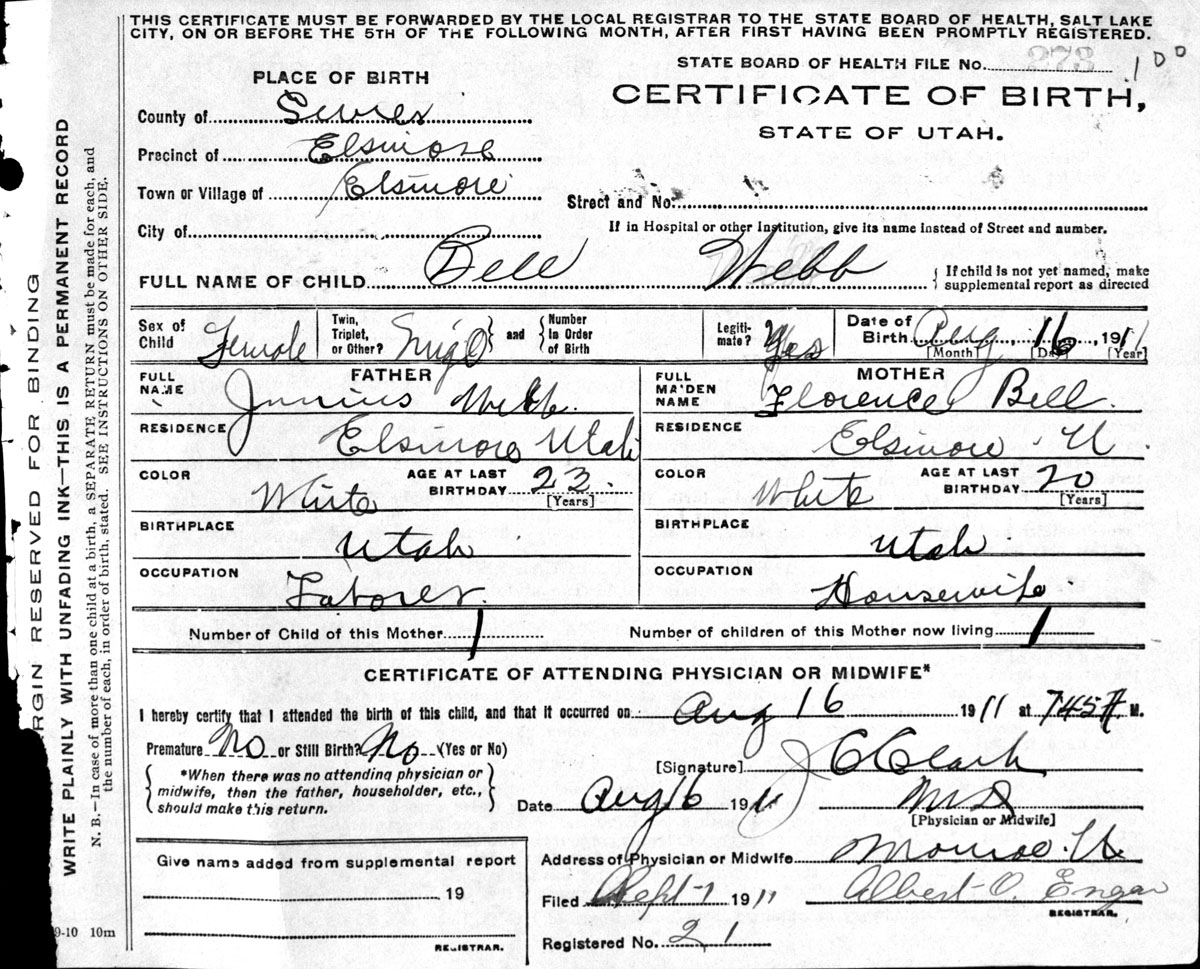 THIS CERTIFICATE MUST BE FORWARDED BY THE LOCAL REGISTRAR TO THE STATE BOARD OF HEALTH, SALT LAKE
CITY, ON OR BEFORE THE 5TH OF THE FOLLOWING MONTH, AFTER FIRST HAVING BEEN PROMPTLY REGISTERED.
STATE BOARD OF HEALTH FILE No. 273 100
PLACE OF BIRTH
CERTIFICATE OF BIRTH,
STATE OF UTAH.
County of Sevier
Precinct of Elsinore
Town or Village of Elsinore
Street and No.
City of
If in Hospital or other Institution, give its name instead of Street and number.
FULL NAME OF CHILD Bell Webb { If child is not yet named, make
supplemental report as directed
Sex of Child Female
Twin, Triplet, or Other? } and { Number in Order of Birth
Legitimate? Yes
Date of Birth Aug 16, 1911
[Month] [Day] [Year]
FATHER
FULL NAME Junius Webb
MOTHER
FULL MAIDEN NAME Florence Bell
RESIDENCE Elsinore Utah
RESIDENCE Elsinore U
COLOR White AGE AT LAST BIRTHDAY 23 [Years]
COLOR White AGE AT LAST BIRTHDAY 20 [Years]
BIRTHPLACE Utah
BIRTHPLACE Utah
OCCUPATION Laborer
OCCUPATION Housewife
Number of Child of this Mother 1 Number of children of this Mother now living 1
CERTIFICATE OF ATTENDING PHYSICIAN OR MIDWIFE*
I hereby certify that I attended the birth of this child, and that it occurred on Aug 16 1911 at 745 A. M.
Premature No or Still Birth? No (Yes or No)
{ *When there was no attending physician or
midwife, then the father, householder, etc.,
should make this return. }
[Signature] J C Clark
Date Aug 16 1911 M D
[Physician or Midwife]
Give name added from supplemental report
19
REGISTRAR.
Address of Physician or Midwife Monroe U
Filed Sept 1 1911 Albert O. Engar
REGISTRAR.
Registered No. 21
RGIN RESERVED FOR BINDING
WRITE PLAINLY WITH UNFADING INK—THIS IS A PERMANENT RECORD
N. B.—In case of more than one child at a birth, a SEPARATE RETURN must be made for each, and
the number of each, in order of birth, stated. SEE INSTRUCTIONS ON OTHER SIDE.
9-10 10m